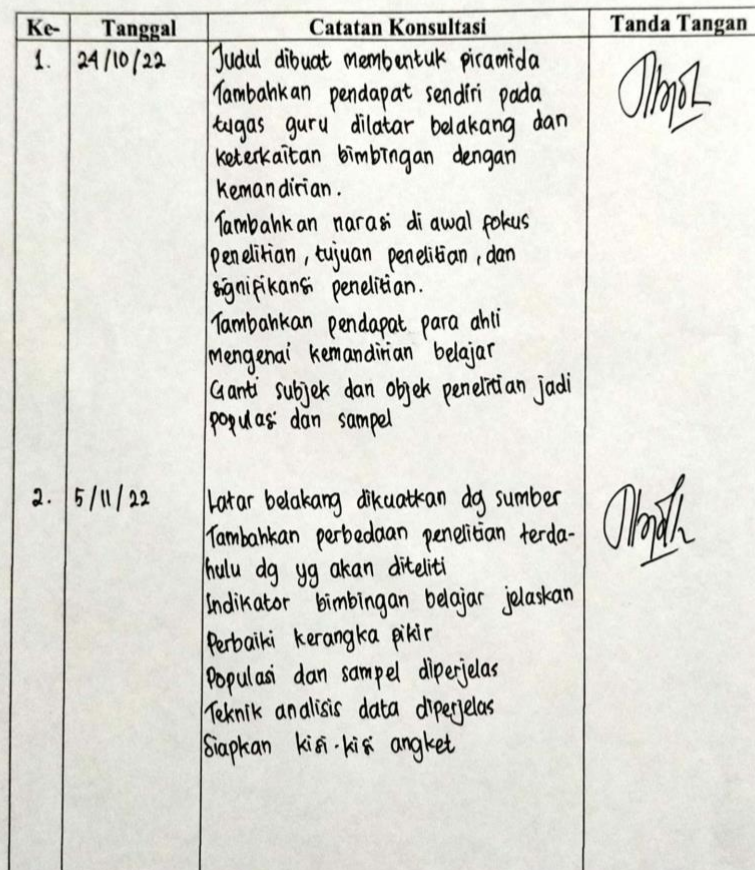 Ke- Tanggal Catatan Konsultasi Tanda Tangan
1. 24/10/22 Judul dibuat membentuk piramida
Tambahkan pendapat sendiri pada
tugas guru dilatar belakang dan
keterkaitan bimbingan dengan
kemandirian.
Tambahkan narasi di awal fokus
penelitian, tujuan penelitian, dan
signifikansi penelitian.
Tambahkan pendapat para ahli
mengenai kemandirian belajar
Ganti subjek dan objek penelitian jadi
populasi dan sampel
2. 5/11/22 Latar belakang dikuatkan dg sumber
Tambahkan perbedaan penelitian terda-
hulu dg yg akan diteliti
Indikator bimbingan belajar jelaskan
Perbaiki kerangka pikir
Populasi dan sampel diperjelas
Teknik analisis data diperjelas
Siapkan kisi-kisi angket